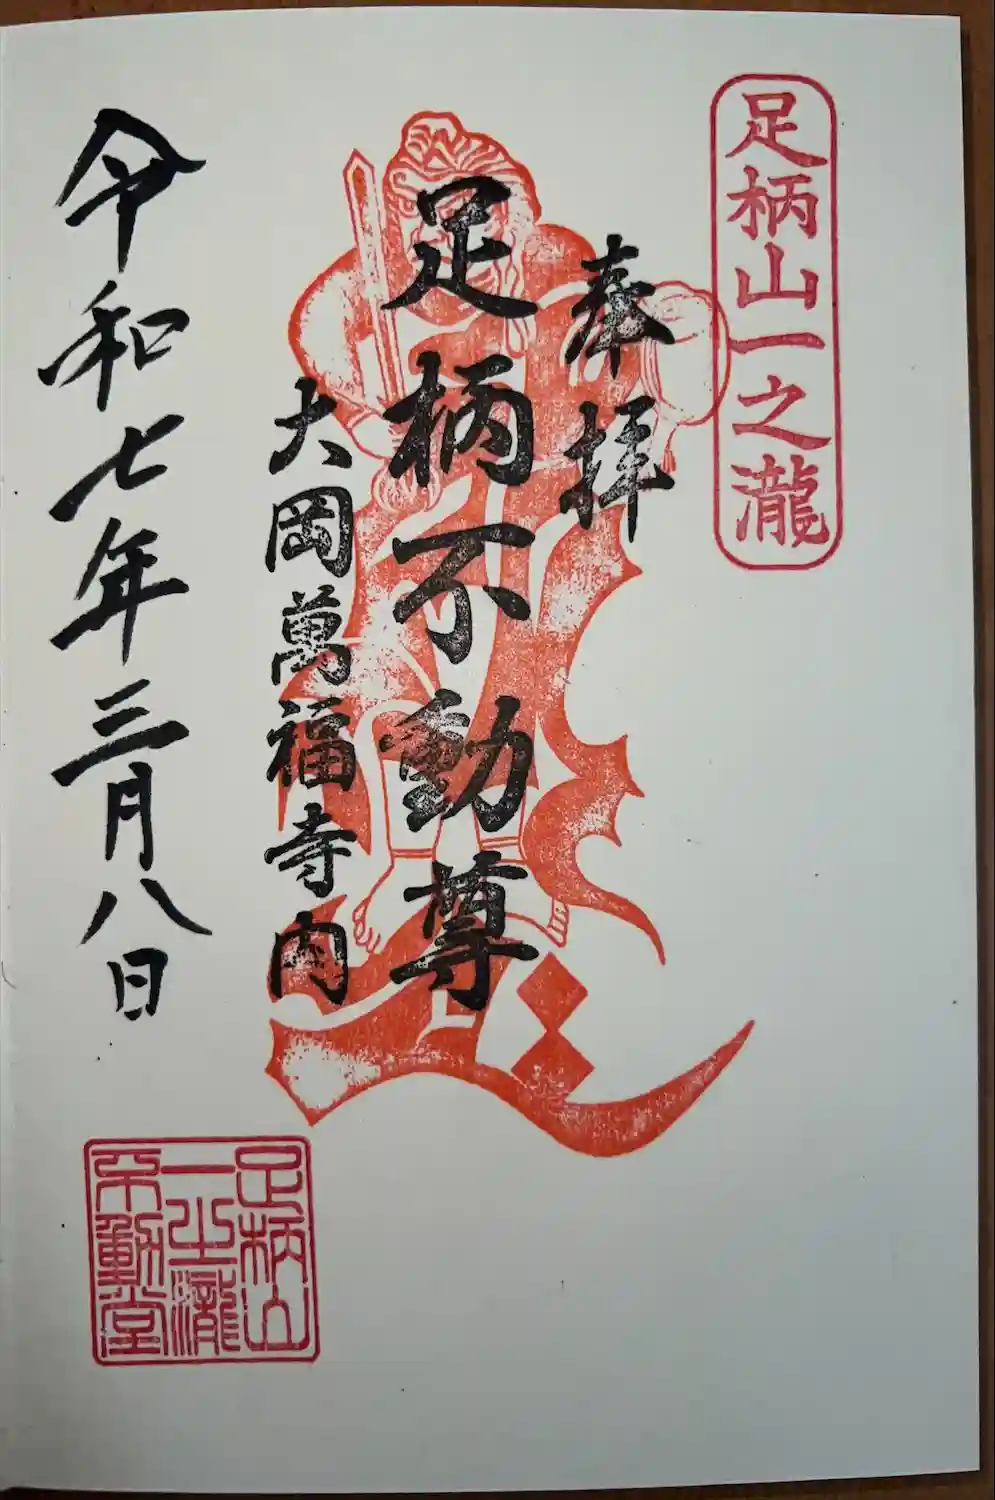 足柄山一之瀧
奉拝
足柄不動尊
大岡萬福寺内
令和七年三月八日
足柄山
一之瀧
不動堂